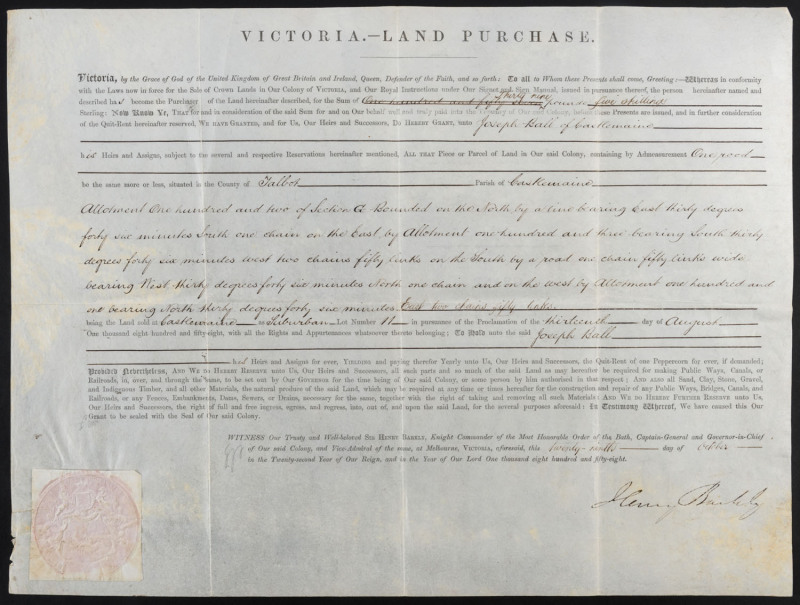 VICTORIA.—LAND PURCHASE.
Victoria, by the Grace of God of the United Kingdom of Great Britain and Ireland, Queen, Defender of the Faith, and so forth: To all to Whom these Presents shall come, Greeting:—Whereas in conformity
with the Laws now in force for the Sale of Crown Lands in Our Colony of VICTORIA, and Our Royal Instructions under Our Signet and Sign Manual, issued in pursuance thereof, the person hereinafter named and
thirty two
described has become the Purchaser of the Land hereinafter described, for the Sum of One hundred and fifty pounds five shillings
Sterling: Now Know Ye, THAT for and in consideration of the said Sum for and on Our behalf well and truly paid into the Treasury of Our said Colony, before these Presents are issued, and in further consideration
of the Quit-Rent hereinafter reserved, WE HAVE GRANTED, and for Us, Our Heirs and Successors, DO HEREBY GRANT, unto Joseph Ball of Castlemaine
his Heirs and Assigns, subject to the several and respective Reservations hereinafter mentioned, ALL THAT Piece or Parcel of Land in Our said Colony, containing by Admeasurement One rood
be the same more or less, situated in the County of Talbot Parish of Castlemaine
Allotment One hundred and two of Section G Bounded on the North by a line bearing East thirty degrees
forty six minutes South one chain on the East by Allotment one hundred and three bearing South thirty
degrees forty six minutes west two chains fifty links on the South by a road one chain fifty links wide
bearing West thirty degrees forty six minutes North one chain and on the west by Allotment one hundred and
one bearing North thirty degrees forty six minutes East two chains fifty links
being the Land sold at Castlemaine as Suburban Lot Number in pursuance of the Proclamation of the thirteenth day of August
One thousand eight hundred and fifty-eight, with all the Rights and Appurtenances whatsoever thereto belonging; To Hold unto the said Joseph Ball
his Heirs and Assigns for ever, YIELDING and paying therefor Yearly unto Us, Our Heirs and Successors, the Quit-Rent of one Peppercorn for ever, if demanded;
Provided Nevertheless, AND WE DO HEREBY RESERVE unto Us, Our Heirs and Successors, all such parts and so much of the said Land as may hereafter be required for making Public Ways, Canals, or
Railroads, in, over, and through the same, to be set out by Our GOVERNOR for the time being of Our said Colony, or some person by him authorised in that respect: AND ALSO all Sand, Clay, Stone, Gravel,
and Indigenous Timber, and all other Materials, the natural produce of the said Land, which may be required at any time or times hereafter for the construction and repair of any Public Ways, Bridges, Canals, and
Railroads, or any Fences, Embankments, Dams, Sewers, or Drains, necessary for the same, together with the right of taking and removing all such Materials: AND WE DO HEREBY FURTHER RESERVE unto Us,
Our Heirs and Successors, the right of full and free ingress, egress, and regress, into, out of, and upon the said Land, for the several purposes aforesaid: In Testimony Whereof, We have caused this Our
Grant to be sealed with the Seal of Our said Colony.
WITNESS Our Trusty and Well-beloved SIR HENRY BARKLY, Knight Commander of the Most Honorable Order of the Bath, Captain-General and Governor-in-Chief
of Our said Colony, and Vice-Admiral of the same, at Melbourne, VICTORIA, aforesaid, this twenty-ninth day of October
in the Twenty-second Year of Our Reign, and in the Year of Our Lord One thousand eight hundred and fifty-eight.
Henry Barkly